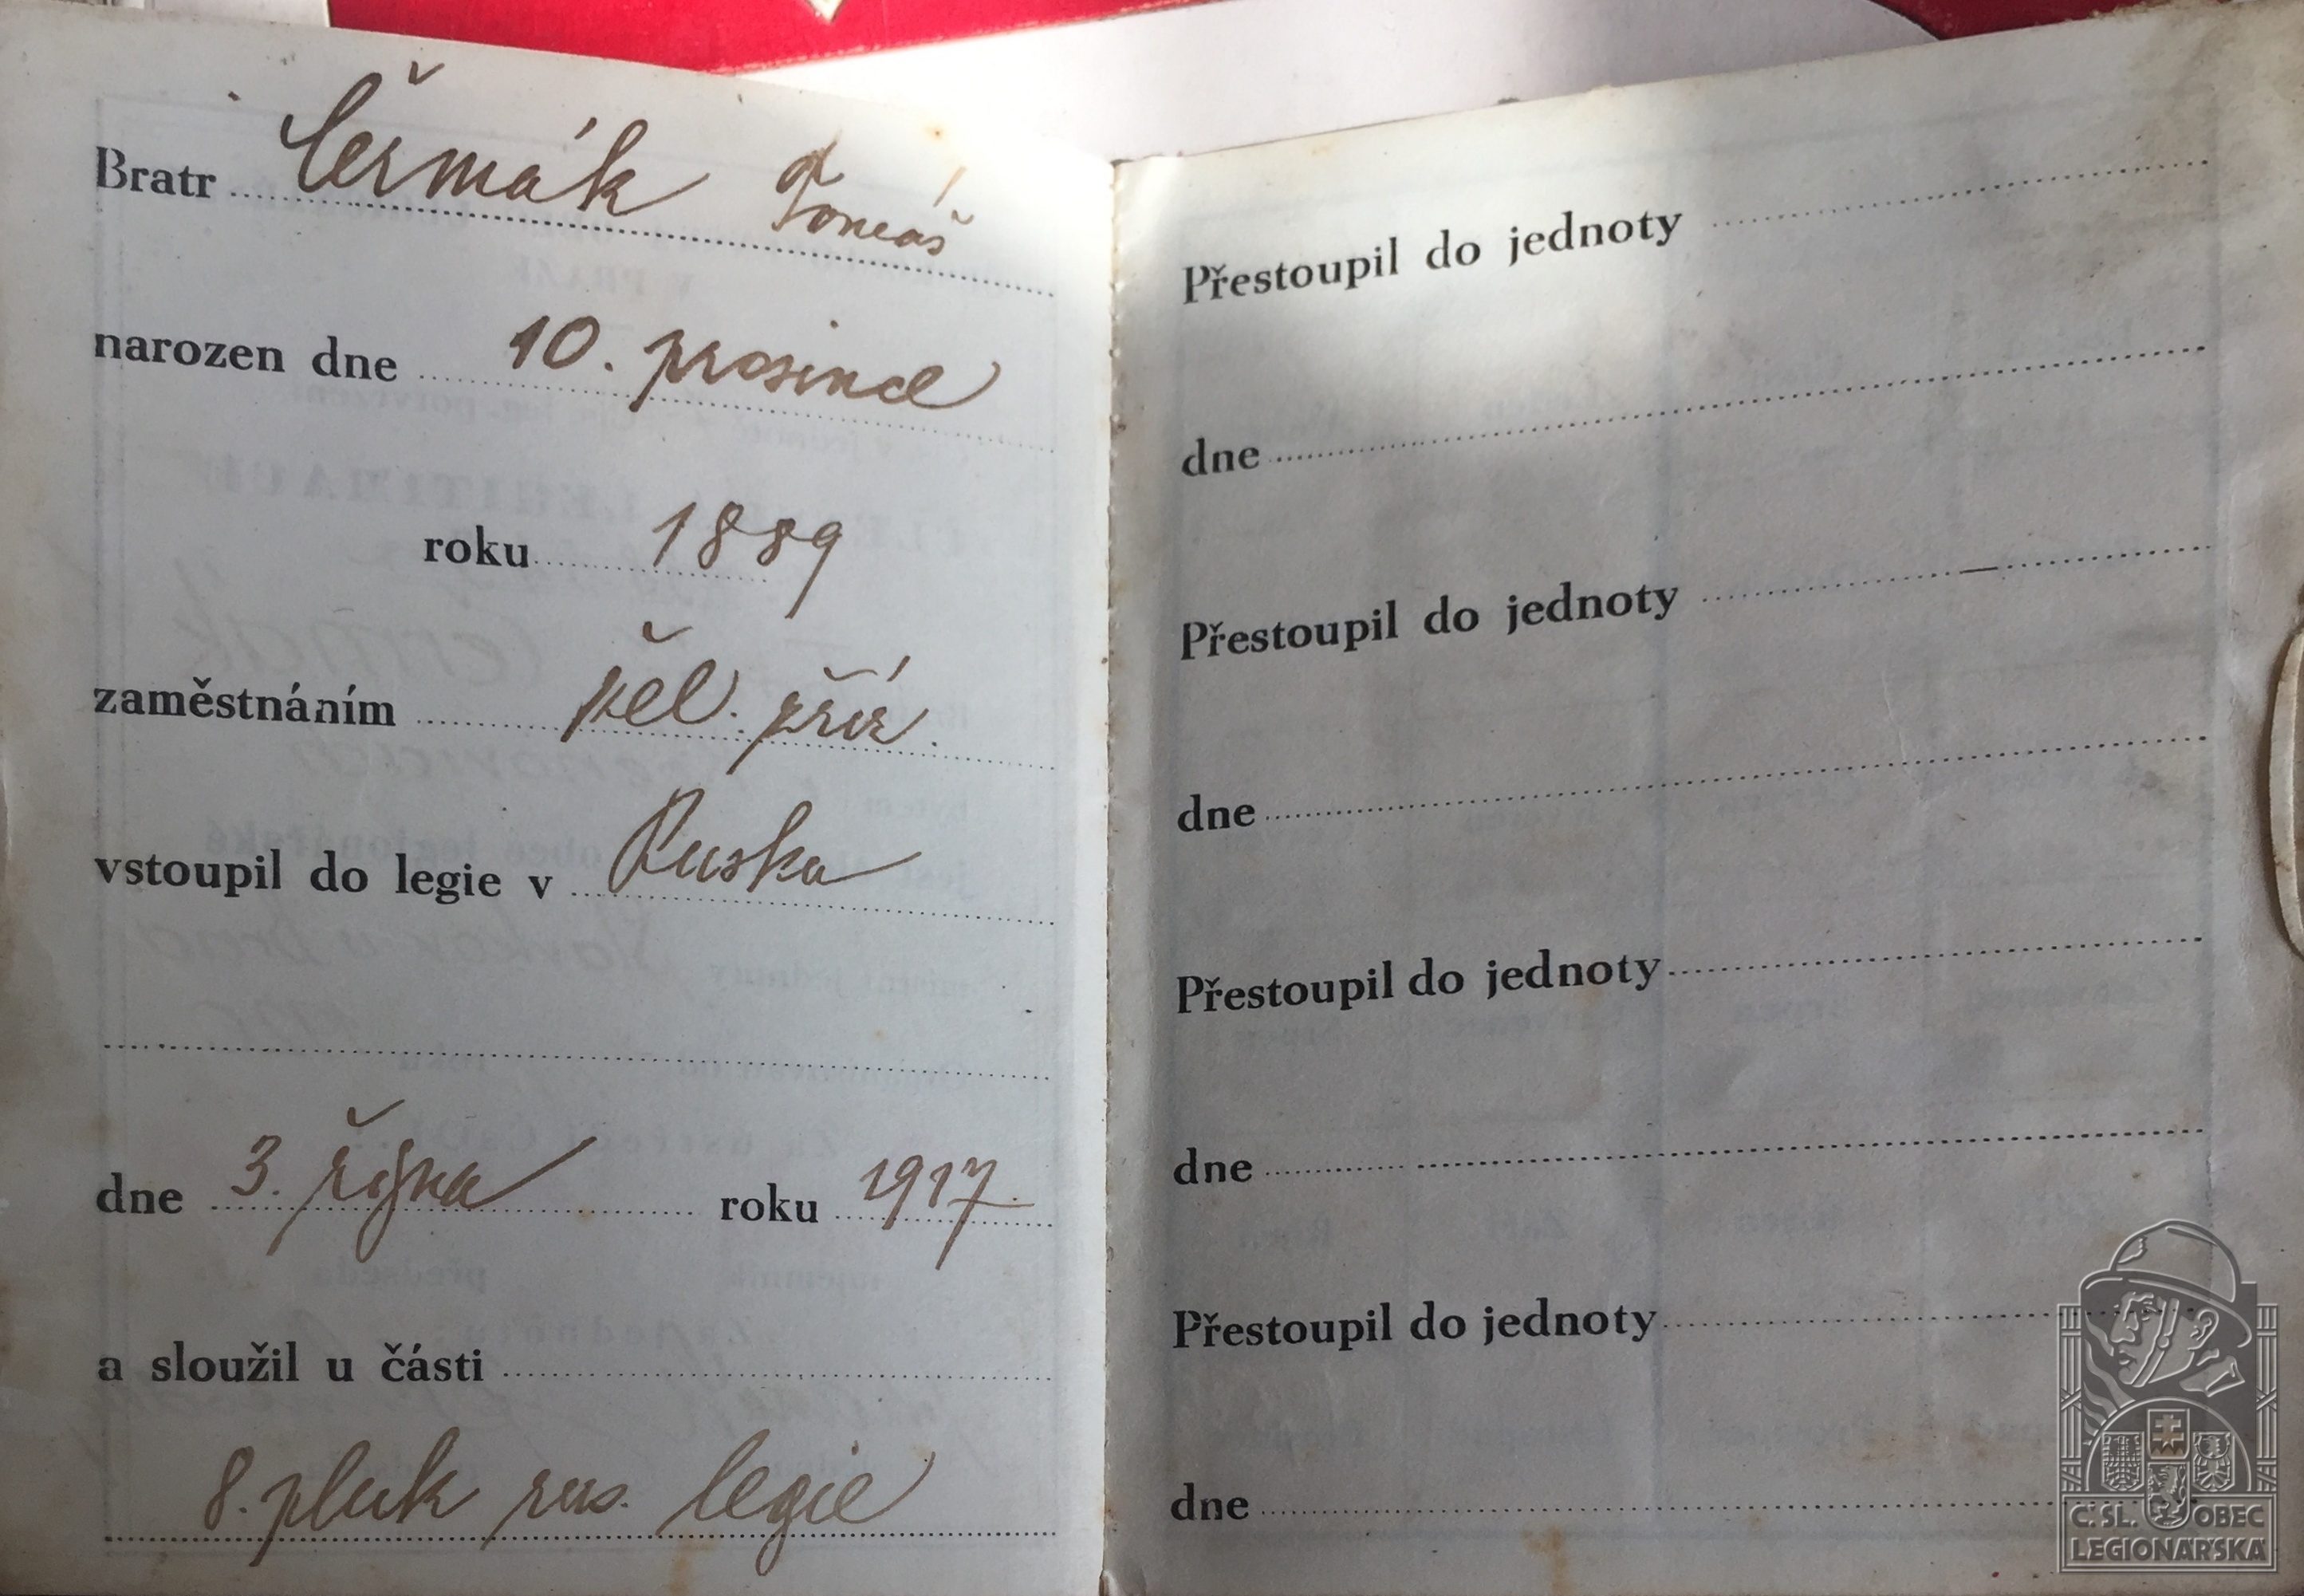 Bratr Čermák Tomáš
narozen dne 10. prosince
roku 1889
zaměstnáním žel. zříz.
vstoupil do legie v Ruska
dne 3. října roku 1917.
a sloužil u části
8. pluk rus. legie
Přestoupil do jednoty
dne
Přestoupil do jednoty
dne
Přestoupil do jednoty
dne
Přestoupil do jednoty
dne
Č. SL. OBEC
LEGIONÁŘSKÁ